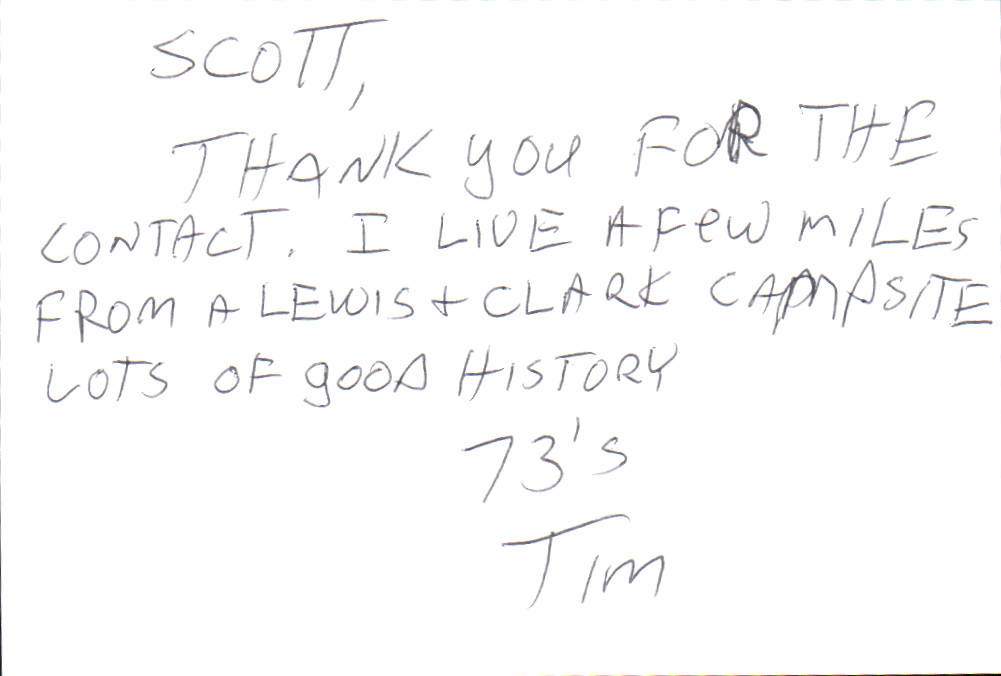 SCOTT,
THANK YOU FOR THE
CONTACT. I LIVE A FEW MILES
FROM A LEWIS + CLARK CAMPSITE
LOTS OF GOOD HISTORY
73's
TIM